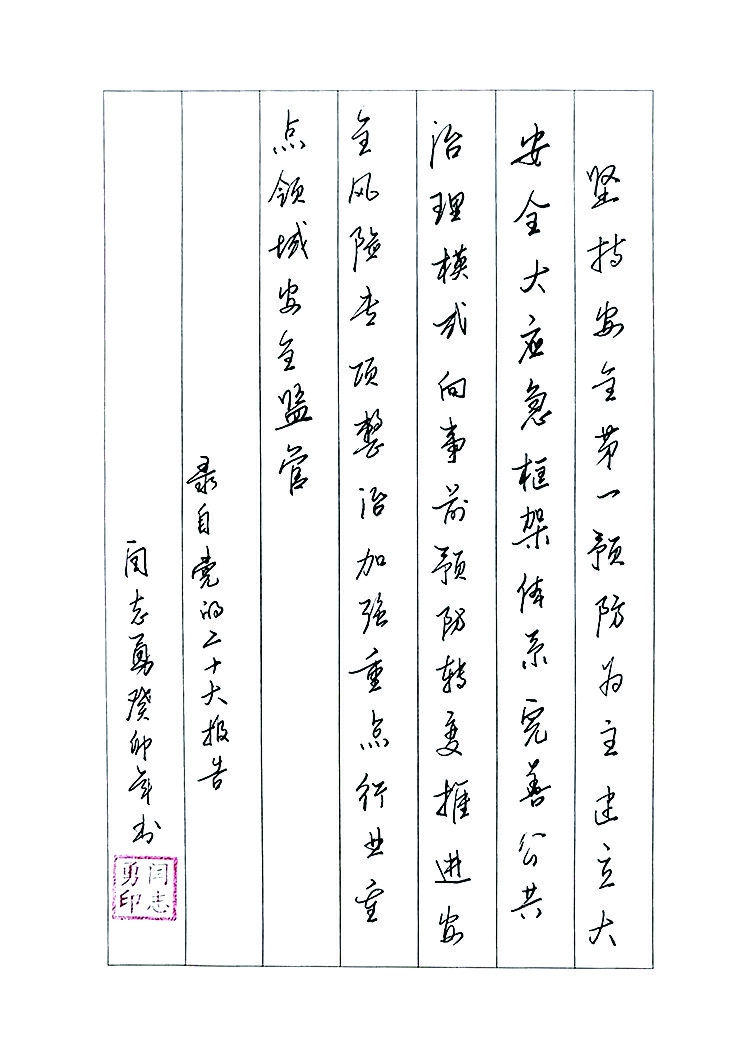 坚持安全第一预防为主建立大
安全大应急框架体系完善公共
治理模式向事前预防转变推进安
全风险专项整治加强重点行业重
点领域安全监管
录自党的二十大报告
闫志勇癸卯年书
闫志勇印